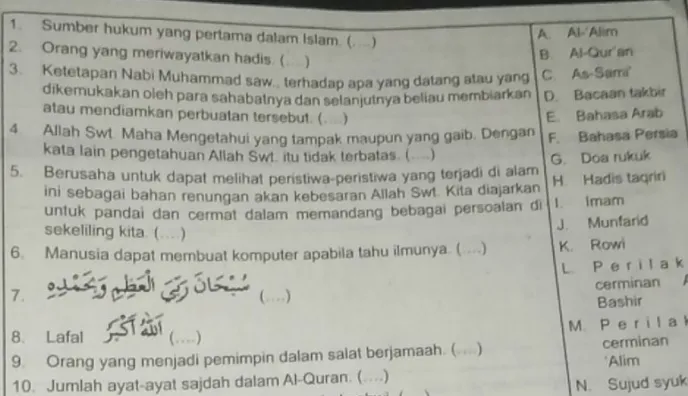 1. Sumber hukum yang pertama dalam Islam. (....)
2. Orang yang meriwayatkan hadis. (....)
3. Ketetapan Nabi Muhammad saw., terhadap apa yang datang atau yang
dikemukakan oleh para sahabatnya dan selanjutnya beliau membiarkan
atau mendiamkan perbuatan tersebut. (....)
4. Allah Swt. Maha Mengetahui yang tampak maupun yang gaib. Dengan
kata lain pengetahuan Allah Swt. itu tidak terbatas. (....)
5. Berusaha untuk dapat melihat peristiwa-peristiwa yang terjadi di alam
ini sebagai bahan renungan akan kebesaran Allah Swt. Kita diajarkan
untuk pandai dan cermat dalam memandang bebagai persoalan di
sekeliling kita. (....)
6. Manusia dapat membuat komputer apabila tahu ilmunya. (....)
7. سُبْحَانَ رَبِّيَ الْعَظِيْمِ وَبِحَمْدِهِ (....)
8. Lafal اَللهُ اَكْبَرُ (....)
9. Orang yang menjadi pemimpin dalam salat berjamaah. (....)
10. Jumlah ayat-ayat sajdah dalam Al-Quran. (....)
A. Al-'Alim
B. Al-Qur'an
C. As-Sami'
D. Bacaan takbir
E. Bahasa Arab
F. Bahasa Persia
G. Doa rukuk
H. Hadis taqriri
I. Imam
J. Munfarid
K. Rowi
L. Perilak
cerminan A
Bashir
M. Perilak
cerminan
'Alim
N. Sujud syuk